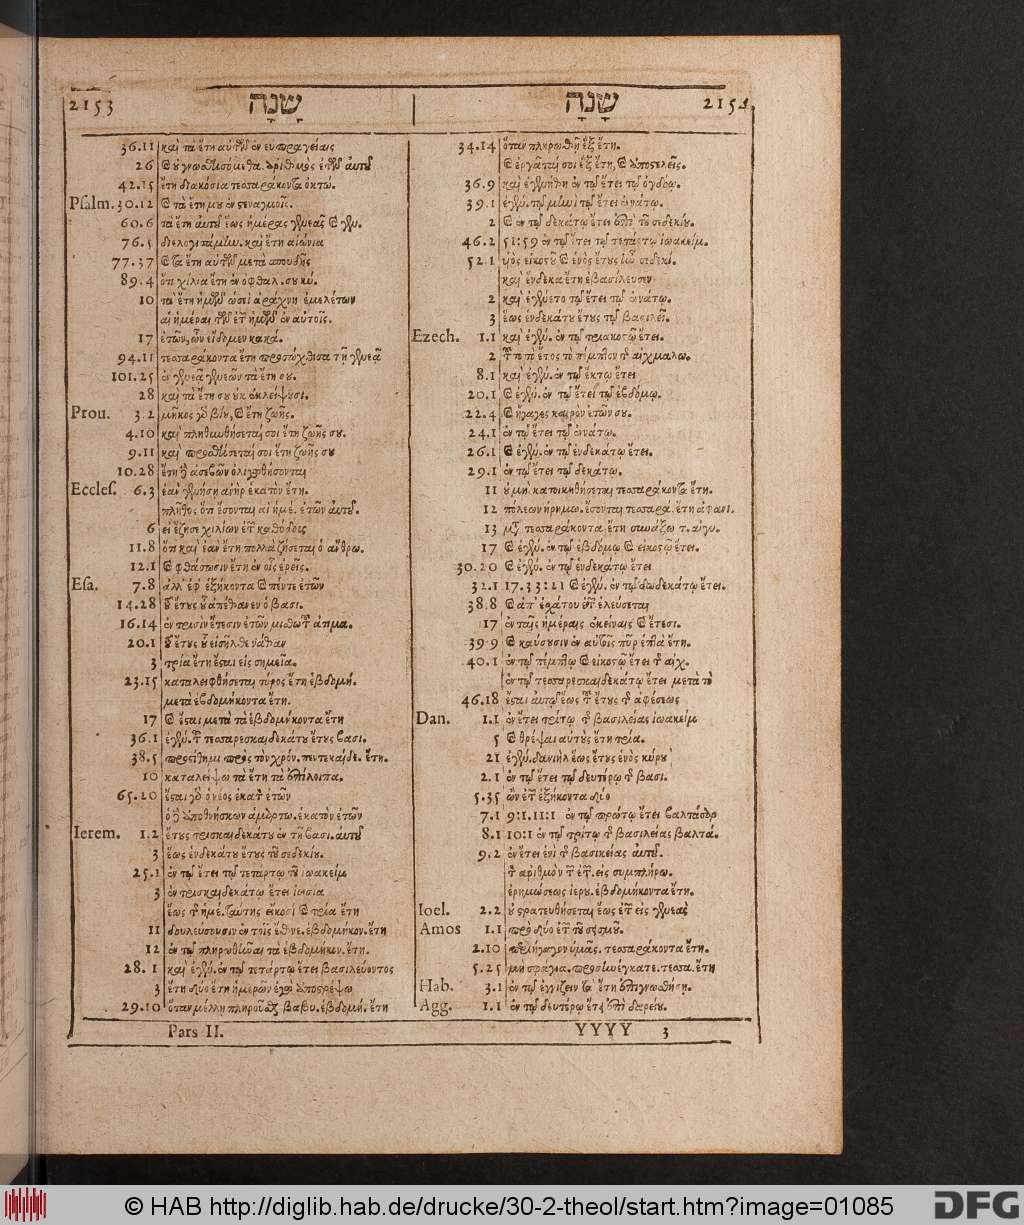 2153 שָׁנָה
36.11 καὶ τὰ ἔτη αὐτῶν ἐν εὐπραγείαις
26 καὶ οὐ γνωσόμεθα. ἀριθμὸς ἐτῶν αὐτοῦ
42.15 ἔτη διακόσια τεσσαράκοντα ὀκτώ.
Psalm. 30.12 καὶ τὰ ἔτη μου ἐν στεναγμοῖς.
60.6 τὰ ἔτη αὐτοῦ ἕως ἡμέρας γενεᾶς καὶ γεν.
76.5 διελογισάμην. καὶ ἔτη αἰώνια
77.37 καὶ τὰ ἔτη αὐτῶν μετὰ σπουδῆς
89.4 ὅτι χίλια ἔτη ἐν ὀφθαλ. σου κύ.
10 τὰ ἔτη ἡμῶν ὡσεὶ ἀράχνη ἐμελέτων
αἱ ἡμέραι τῶν ἐτῶν ἡμῶν ἐν αὐτοῖς.
17 ἐτῶν, ὧν εἴδομεν κακά.
94.11 τεσσαράκοντα ἔτη προσώχθισα τῇ γενεᾷ
101.25 ἐν γενεᾷ γενεῶν τὰ ἔτη σου.
28 καὶ τὰ ἔτη σου οὐκ ἐκλείψουσι.
Prou. 3.2 μῆκος γὰρ βίου, καὶ ἔτη ζωῆς.
4.10 καὶ πληθυνθήσεταί σοι ἔτη ζωῆς σου.
9.11 καὶ προστεθήσεταί σοι ἔτη ζωῆς σου
10.28 ἔτη δὲ ἀσεβῶν ὀλιγωθήσονται
Eccles. 6.3 ἐὰν γεννήσῃ ἀνὴρ ἑκατὸν ἔτη.
πλῆθος ὅτι ἔσονται αἱ ἡμέ. ἐτῶν αὐτοῦ.
6 εἰ ἔζησε χιλίων ἐτῶν καθόδους
11.8 ὅτι καὶ ἐὰν ἔτη πολλὰ ζήσεται ὁ ἄνθρω.
12.1 καὶ φθάσωσιν ἔτη ἐν οἷς ἐρεῖς.
Esa. 7.8 ἀλλ' ἐφ' ἑξήκοντα καὶ πέντε ἐτῶν
14.28 τοῦ ἔτους οὗ ἀπέθανεν ὁ βασι.
16.14 ἐν τρισὶν ἔτεσιν ἐτῶν μισθωτοῦ ἀτιμα.
20.1 τοῦ ἔτους οὗ εἰσῆλθε νάθαν
3 τρία ἔτη ἔσται εἰς σημεῖα.
23.15 καταλειφθήσεται τύρος ἔτη ἑβδομή.
μετὰ ἑβδομήκοντα ἔτη.
17 καὶ ἔσται μετὰ τὰ ἑβδομήκοντα ἔτη
36.1 ἐγέν. τοῦ τεσσαρεσκαιδεκάτου ἔτους βασι.
38.5 προστίθημι πρὸς τὸν χρόν. πεντεκαίδε. ἔτη.
10 καταλείψω τὰ ἔτη τὰ ἐπίλοιπα.
65.20 ἔσται γὰρ ὁ νέος ἑκατὸν ἐτῶν
ὁ δὲ ἀποθνήσκων ἁμαρτω. ἑκατὸν ἐτῶν
Ierem. 1.2 ἔτους τρισκαιδεκάτου ἐν τῇ βασι. αὐτοῦ
3 ἕως ἑνδεκάτου ἔτους τοῦ σεδεκίου.
25.1 ἐν τῷ ἔτει τῷ τετάρτῳ τοῦ ἰωακείμ
3 ἐν τρισκαιδεκάτῳ ἔτει ἰωσία
ἕως τῆς ἡμέ. ταύτης εἴκοσι καὶ τρία ἔτη
11 δουλεύσουσιν ἐν τοῖς ἔθνε. ἑβδομήκον. ἔτη
12 ἐν τῷ πληρωθῆναι τὰ ἑβδομήκον. ἔτη.
28.1 καὶ ἐγέν. ἐν τῷ τετάρτῳ ἔτει βασιλεύοντος
3 ἔτι δύο ἔτη ἡμερῶν ἐγὼ ἀποστρέψω
29.10 ὅταν μέλλῃ πληροῦσθαι βαβυ. ἑβδομή. ἔτη
שָׁנָה 2154
34.14 ὅταν πληρωθῇ ἓξ ἔτη.
καὶ ἐργᾶταί σοι ἓξ ἔτη, καὶ ἀποστελεῖς.
36.9 καὶ ἐγενήθη ἐν τῷ ἔτει τῷ ὀγδόῳ.
39.1 ἐγέν. τῷ μηνὶ τῷ ἔτει ἐννάτῳ.
2 καὶ ἐν τῷ δεκάτῳ ἔτει ἐπὶ τοῦ σεδεκίου.
46.2 51:59 ἐν τῷ ἔτει τῷ τετάρτῳ ἰωακείμ.
52.1 υἱὸς εἰκοστοῦ καὶ ἑνὸς ἔτους ἦν σεδεκί.
καὶ ἕνδεκα ἔτη ἐβασίλευσεν
2 καὶ ἐγένετο τῷ ἔτει τῷ ἐννάτῳ.
3 ἕως ἑνδεκάτου ἔτους τῷ βασιλεῖ.
Ezech. 1.1 καὶ ἐγέν. ἐν τῷ τριακοστῷ ἔτει.
2 τοῦτο τὸ ἔτος τὸ πέμπτον τῆς αἰχμαλω.
8.1 καὶ ἐγέν. ἐν τῷ ἕκτῳ ἔτει
20.1 καὶ ἐγέν. ἐν τῷ ἔτει τῷ ἑβδόμῳ.
22.4 καὶ ἤγαγες καιρὸν ἐτῶν σου.
24.1 ἐν τῷ ἔτει τῷ ἐννάτῳ.
26.1 καὶ ἐγέν. ἐν τῷ ἑνδεκάτῳ ἔτει.
29.1 ἐν τῷ ἔτει τῷ δεκάτῳ.
11 οὐ μὴ κατοικηθήσεται τεσσαράκοντα ἔτη.
12 πόλεων ἠρημω. ἔσονται τεσσαρά. ἔτη ἀφανι.
13 μετὰ τεσσαράκοντα ἔτη συνάξω τ. αἰγυ.
17 καὶ ἐγέν. ἐν τῷ ἑβδόμῳ καὶ εἰκοστῷ ἔτει.
30.20 καὶ ἐγέν. ἐν τῷ ἑνδεκάτῳ ἔτει
32.1 17.33:21 καὶ ἐγέν. ἐν τῷ δωδεκάτῳ ἔτει.
38.8 καὶ ἀπ' ἐσχάτου ἐτῶν ἐλεύσεται
17 ἐν ταῖς ἡμέραις ἐκείναις καὶ ἔτεσι.
39.9 καὶ καύσουσιν ἐν αὐτοῖς πῦρ ἑπτὰ ἔτη.
40.1 ἐν τῷ πέμπτῳ καὶ εἰκοστῷ ἔτει τῆς αἰχ.
ἐν τῷ τεσσαρεσκαιδεκάτῳ ἔτει μετὰ τὸ
46.18 ἔσται αὐτῷ ἕως τοῦ ἔτους τῆς ἀφέσεως
Dan. 1.1 ἐν ἔτει τρίτῳ τῆς βασιλείας ἰωακείμ
5 καὶ θρέψαι αὐτοὺς ἔτη τρία.
21 ἐγέν. δανιὴλ ἕως ἔτους ἑνὸς κύρου
2.1 ἐν τῷ ἔτει τῷ δευτέρῳ τῆς βασι.
5.35 ὢν ἐτῶν ἑξήκοντα δύο
7.1 9:1.11:1 ἐν τῷ πρώτῳ ἔτει βαλτάσαρ
8.1 10:1 ἐν τῷ τρίτῳ τῆς βασιλείας βαλτά.
9.2 ἐν ἔτει ἑνὶ τῆς βασιλείας αὐτοῦ.
τὸν ἀριθμὸν τῶν ἐτῶν. εἰς συμπλήρω.
ἐρημώσεως ἱερου. ἑβδομήκοντα ἔτη.
Ioel. 2.2 οὐ προστεθήσεται ἕως ἐτῶν εἰς γενεὰς
Amos 1.1 πρὸ δύο ἐτῶν τοῦ σεισμοῦ.
2.10 περιήγαγον ὑμᾶς. τεσσαράκοντα ἔτη.
5.25 μὴ σφάγια. προσηνέγκατε. τεσσα. ἔτη
Hab. 3.1 ἐν τῷ ἐγγίζειν τὰ ἔτη ἐπιγνωσθήσῃ.
Agg. 1.1 ἐν τῷ δευτέρῳ ἔτει ἐπὶ δαρείου.
Pars II. YYYY 3
© HAB http://diglib.hab.de/drucke/30-2-theol/start.htm?image=01085
DFG